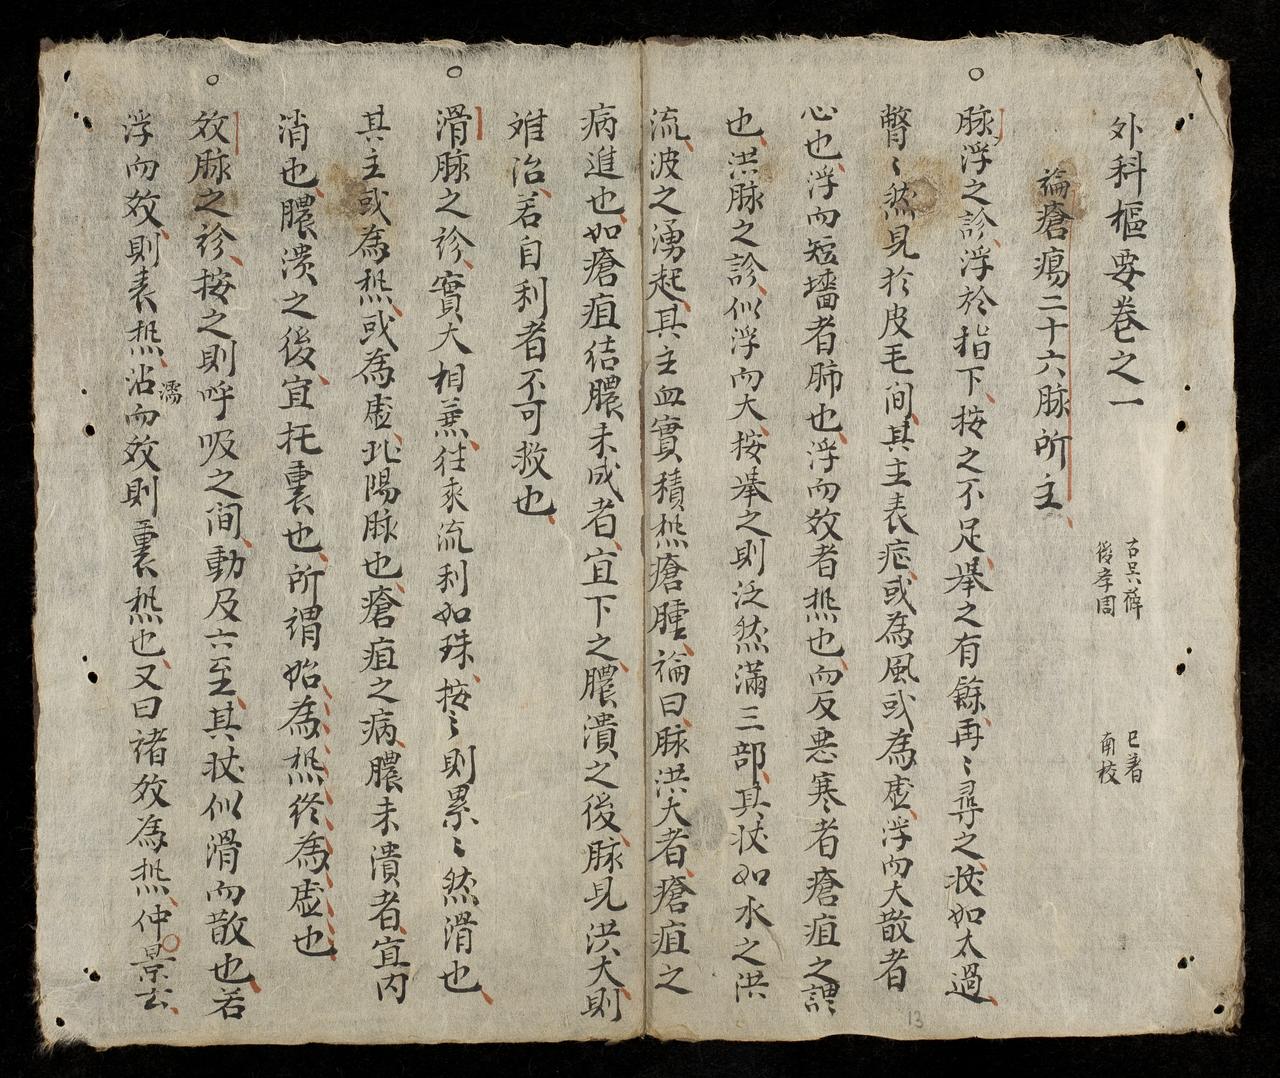 外科樞要巻之一
古吳薛
後孝周
巳著
南枝
論瘡瘍二十六脉所主
脉浮之診浮於指下按之不足舉之有餘再〻尋之狀如太過
瞥〻然見於皮毛间其主表症或為風或為虛浮而大散者
心也浮而短濇者肺也浮而效者热也而反恶寒者瘡疽之謂
也洪脉之診似浮而大按舉之則泛然滿三部其狀如水之洪
流波之湧起其主血實積热瘡腫論曰脉洪大者瘡疽之
病進也如瘡疽结膿未成者宜下之膿潰之後脉見洪大則
难治若自利者不可救也
滑脉之診實大相兼往來流利如珠按〻則累〻然滑也
其主或為热或為虛此陽脉也瘡疽之病膿未潰者宜内
消也膿溃之後宜托裏也所謂始為热终為虛也
效脉之診按之則呼吸之间動及六至其狀似滑而散也若
浮而效則表热沾而效則裏热也又曰諸效為热仲景云
濡
13